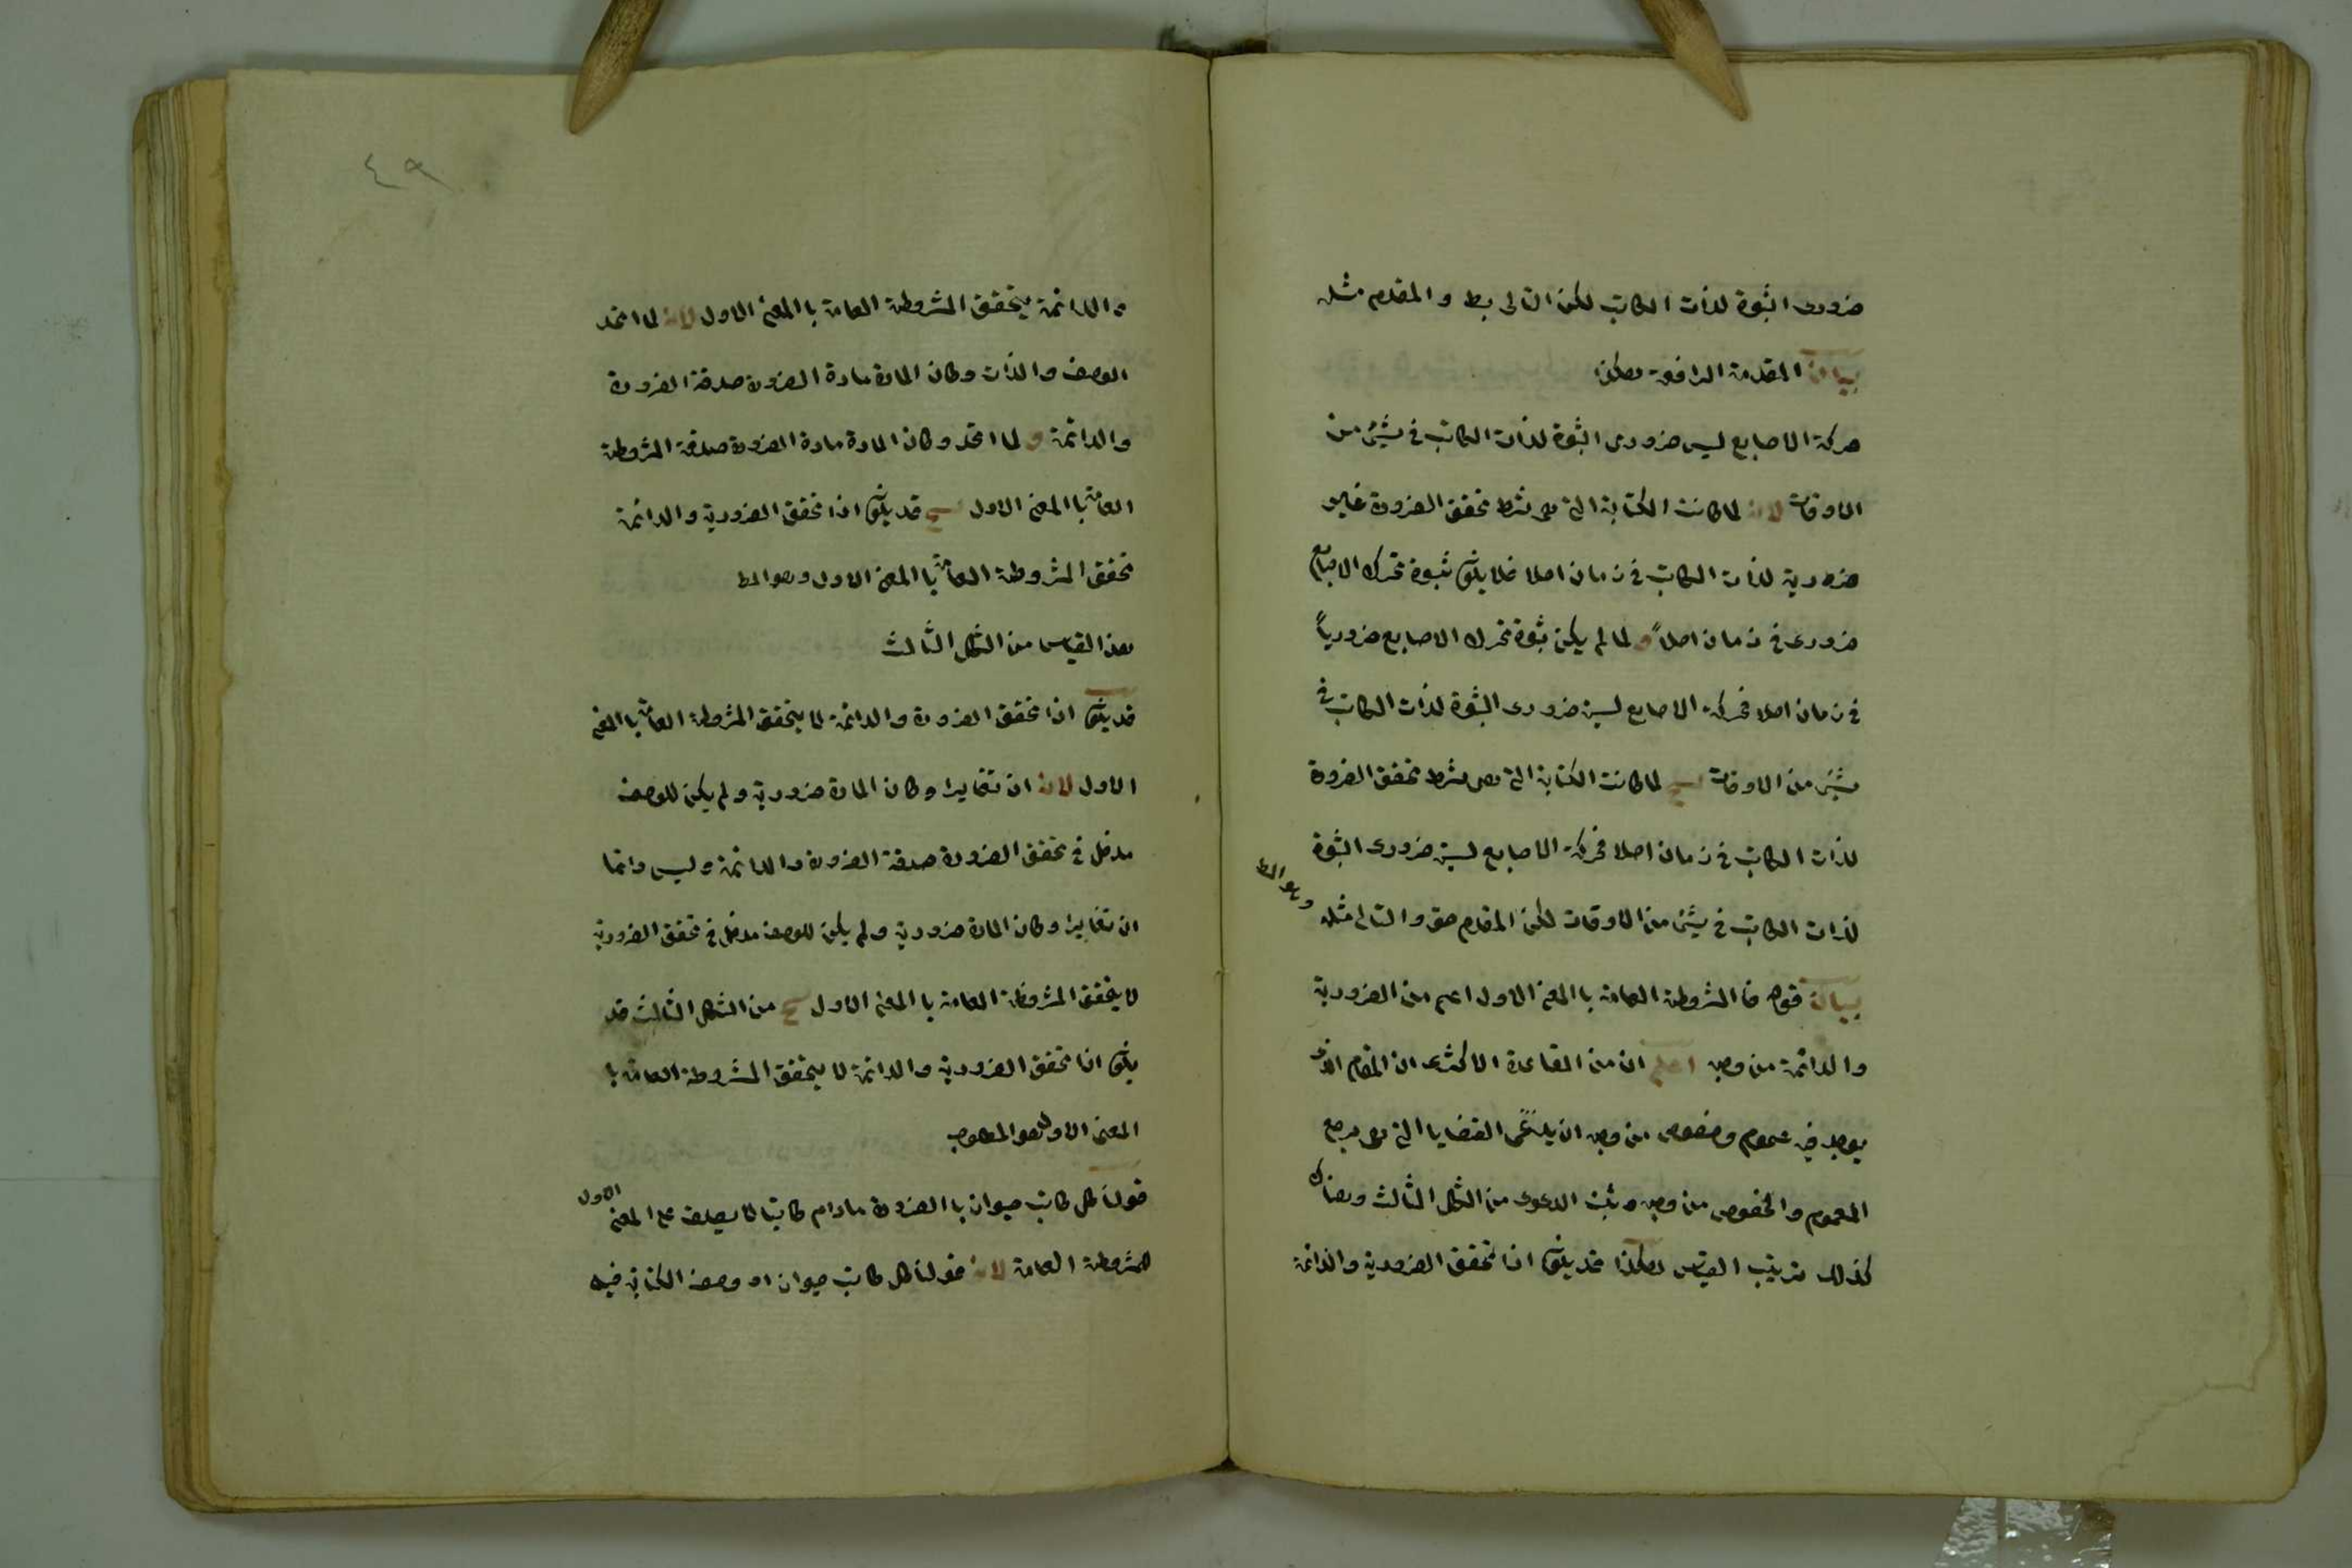 ضرورى الثبوة لذات الكاتب لكن التالى بط والمقدم مثله
بيان المقدمة الرافعة هكذا
حركة الاصابع ليس ضرورى الثبوة لذات الكاتب فى شيئ من
الاوقات لانه لما كانت الكتابة التى هى شرط تحقق الضرورة غير
ضرورية لذات الكاتب فى زمان اصلا فلا يكون ثبوة تحرك الاصابع
ضرورى فى زمان اصلاً و لما لم يكن ثبوة تحرك الاصابع ضرورياً
فى زمان اصلا فحركة الاصابع ليس ضرورى الثبوة لذات الكاتب فى
شيئ من الاوقات ينتج لما كانت الكتابة التى هى شرط تحقق الضرورة
لذات الكاتب فى زمان اصلا فحركة الاصابع ليس ضرورى الثبوة
لذات الكاتب فى شيئ من الاوقات لكن المقدم حق والتالى مثله
وهو المط
بيان قوله فالمشروطة العامة باالمعنى الاول اعم من الضرورية
والدائمة من وجه اعلم ان من القاعدة الاكثرى ان المقام الذى
يوجد فيه عموم وخصوص من وجه ان يدعى القضايا التى هى مرجع
العموم والخصوص من وجه ويثبت الدعوى من الشكل الثالث وهناك
كذلك ترتيب القياس هكذا قد يكون اذا تحقق الضرورية والدائمة
٤٩
والدائمة يتحقق المشروطة العامة باالمعنى الاول لانه لما اتحد
الوصف والذات وكان المادة مادة الضرورة صدقة الضرورة
والدائمة و لما اتحد وكان المادة مادة الضرورة صدقة المشروطة
العامة باالمعنى الاول ينتج قد يكون اذا تحقق الضرورية والدائمة
تحقق المشروطة العامة باالمعنى الاول وهو المط
هذا القياس من الشكل الثالث
قد يكون اذا تحقق الضرورة والدائمة لا يتحقق المشروطة العامة باالمعنى
الاول لانه ان تغايرا وكان المادة ضرورية ولم يكن للوصف
مدخل فى تحقق الضرورة صدقة الضرورة والدائمة وليس دائما
ان تغايرا وكان المادة ضرورية ولم يكن للوصف مدخل فى تحقق الضرورية
لا يتحقق المشروطة العامة باالمعنى الاول ينتج من الشكل الثالث قد
يكون اذا تحقق الضرورية والدائمة لا يتحقق المشروطة العامة با
المعنى الاول وهو المطلوب
قولنا كل كاتب حيوان باالضرورة مادام كاتبا لا يصدق على المعنى الاول
للمشروطة العامة لانه قولنا كل كاتب حيوان او وصف الكتابة فيه